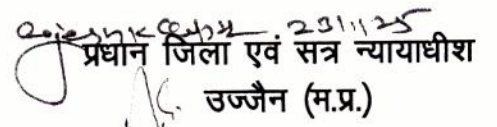 23/11/25
प्रधान जिला एवं सत्र न्यायाधीश
उज्जैन (म.प्र.)